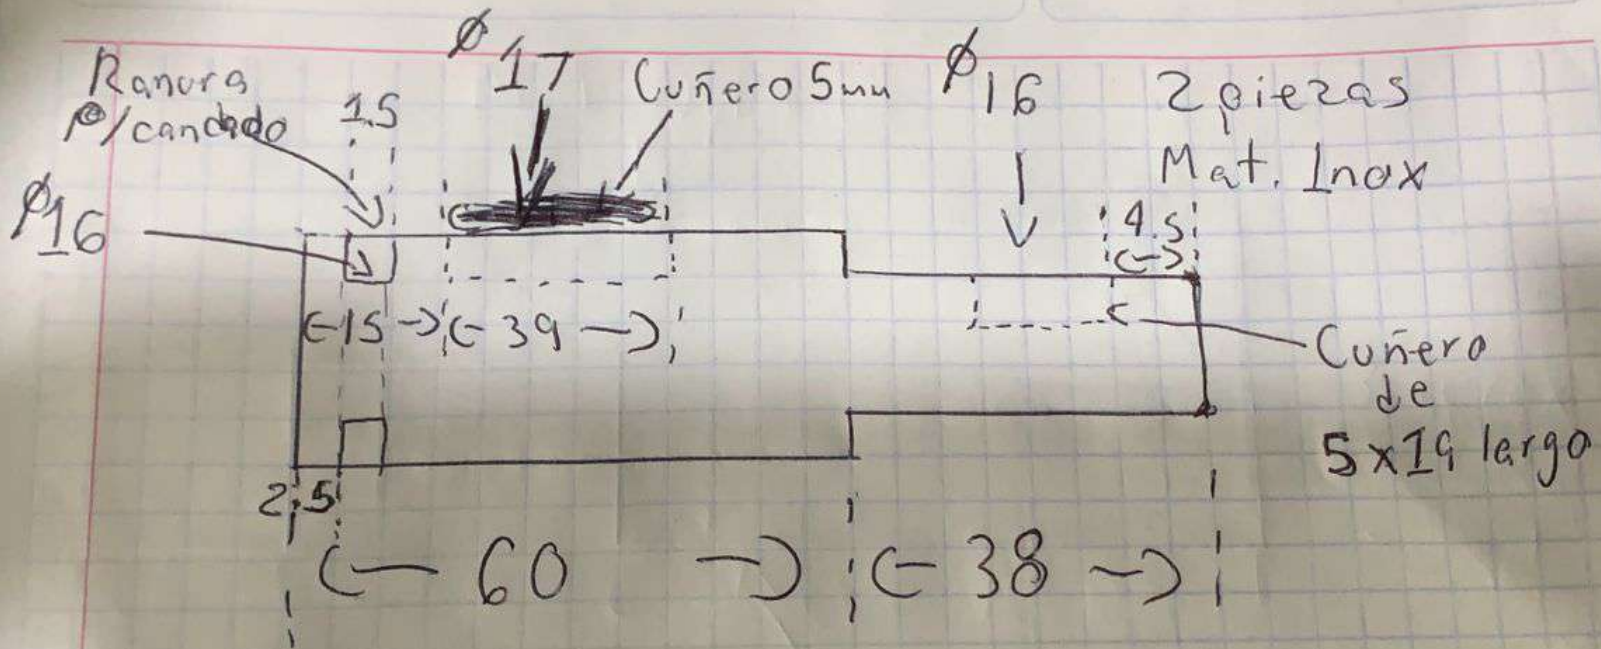 Ranura
p/candado
1.5
Ø17
Cuñero 5mm
Ø16
2 piezas
Mat. Inox
Ø16
4.5
15
39
Cuñero
de
5x19 largo
2.5
60
38